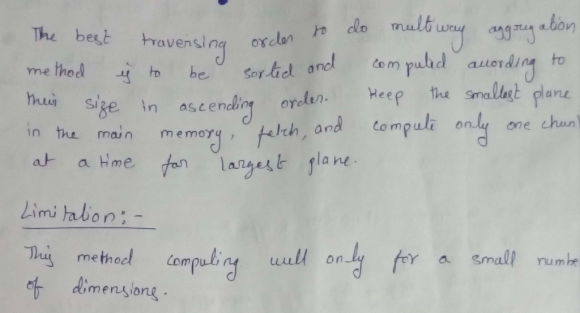 The best traversing order to do multiway aggregation
method is to be sorted and computed according to
their size in ascending order. Keep the smallest plane
in the main memory, fetch, and compute only one chun
at a time for largest plane.
Limitation:-
This method computing well only for a small numbe
of dimensions.